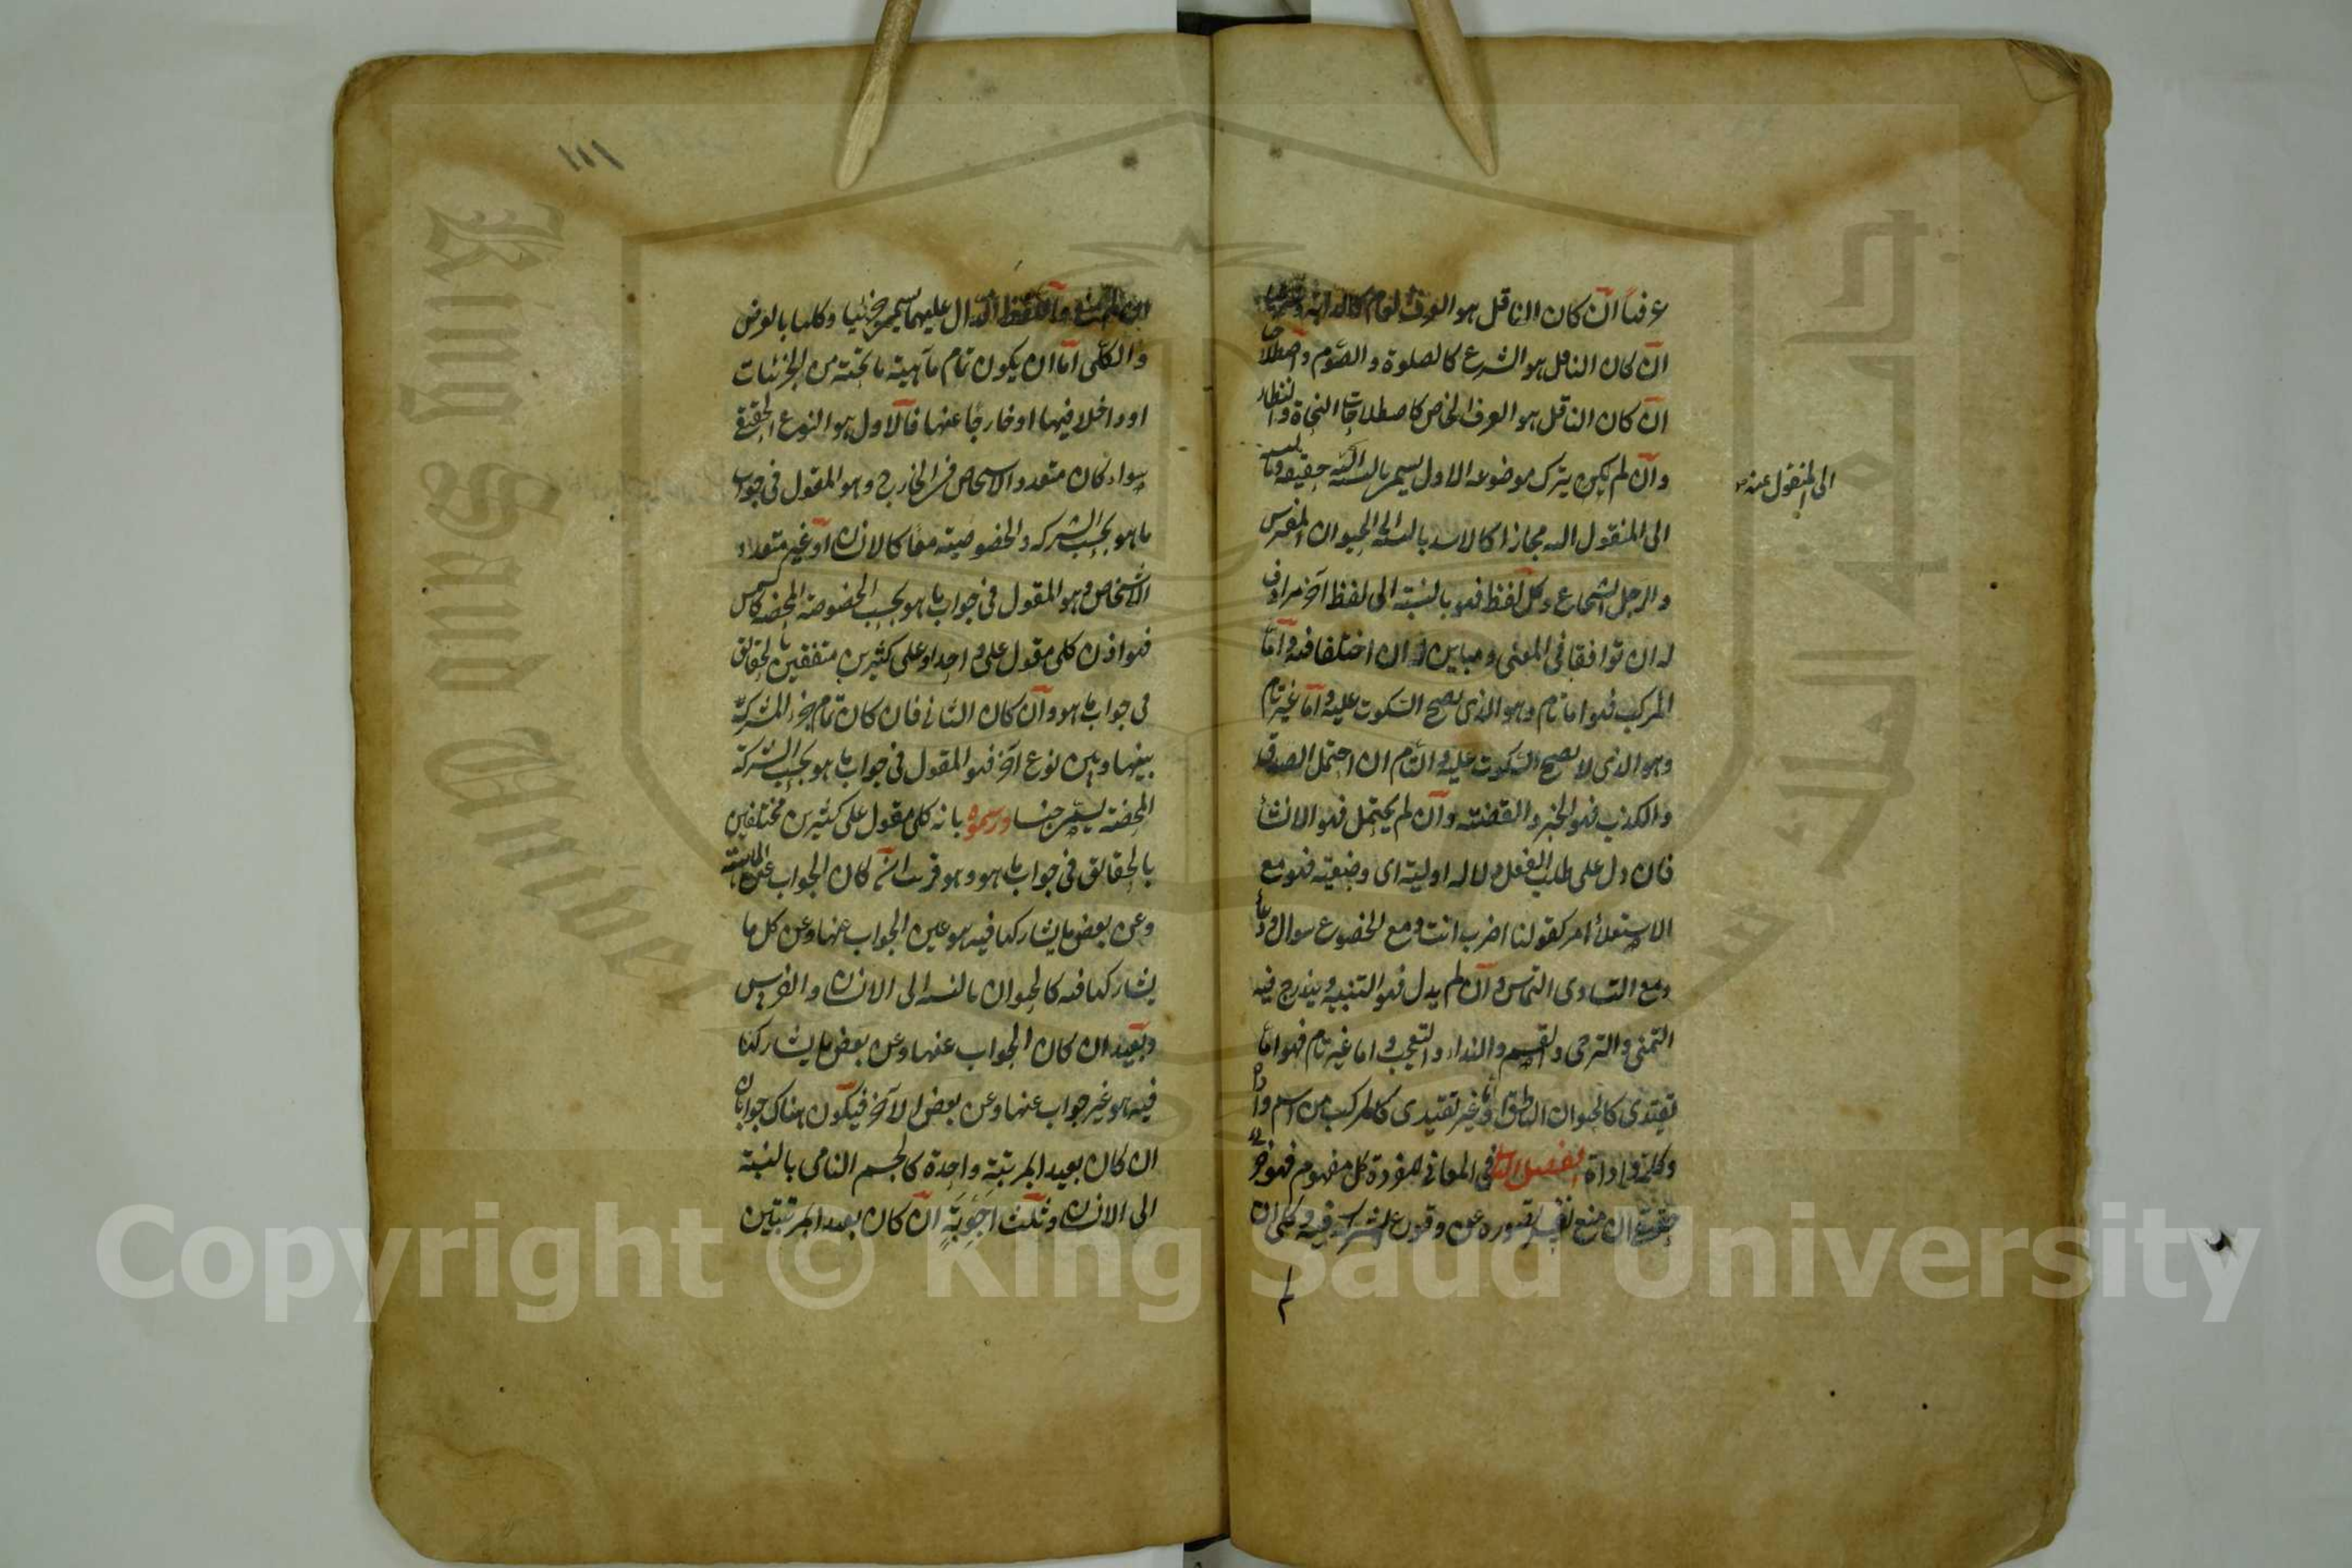 عرفيا ان كان الناقل هو العرف العام كالدابة وشرعيا
ان كان الناقل هو الشرع كالصلوة والصوم واصطلاحيا
ان كان الناقل هو العرف الخاص كاصطلاحات النحاة والنظار
وان لم يكن يترك موضوعه الاول يسمى بالنسبة اليه حقيقة وبالنسبة
الى المنقول عنه
الى المنقول اليه مجازا كالاسد بالنسبة الى الحيوان المفترس
والرجل الشجاع وكل لفظ فهو بالنسبة الى لفظ آخر مرادف
له ان توافقا فى المعنى ومباين له ان اختلفا فيه واما
المركب فهو اما تام وهو الذى يصح السكوت عليه واما غير تام
وهو الذى لا يصح السكوت عليه والتام ان احتمل الصدق
والكذب فهو الخبر والقضية وان لم يحتمل فهو الانشاء
فان دل على طلب الفعل دلالة اولية اى وضعية فهو مع
الاستعلاء امر كقولنا اضرب انت ومع الخضوع سوال ودعاء
ومع التساوى التماس وان لم يدل فهو التنبيه ويندرج فيه
التمنى والترجى والقسم والنداء والتعجب واما غير تام فهو اما
تقييدى كالحيوان الناطق واما غير تقييدى كالمركب من اسم واداة
وكلمة واداة الفصل الثانى فى المعانى المفردة كل مفهوم فهو جزئى
حقيقى ان منع نفس تصوره عن وقوع الشركة فيه وكلى ان
لم
١١١
ان لم يمنع واللفظ الدال عليهما يسمى جزئيا وكليا بالعرض
والكلى اما ان يكون تمام ماهية ما تحته من الجزئيات
او داخلا فيها او خارجا عنها فالاول هو النوع الحقيقى
سواء كان متعدد الاشخاص فى الخارج وهو المقول فى جواب
ما هو بحسب الشركة والخصوصية معا كالانسان او غير متعدد
الاشخاص وهو المقول فى جواب ما هو بحسب الخصوصية المحضة كالشمس
فهو اذن كلى مقول على واحد او على كثيرين متفقين بالحقائق
فى جواب ما هو وان كان الثانى فان كان تمام جزء المشترك
بينها وبين نوع آخر فهو المقول فى جواب ما هو بحسب الشركة
المحضة يسمى جنسا ورسموه بانه كلى مقول على كثيرين مختلفين
بالحقائق فى جواب ما هو وهو قريب ان كان الجواب عن الماهية
وعن بعض ما يشاركها فيه هو عين الجواب عنها وعن كل ما
يشاركها فيه كالحيوان بالنسبة الى الانسان والفرس
وبعيد ان كان الجواب عنها وعن بعض ما يشاركها
فيه هو غير جواب عنها وعن بعض الآخر فيكون هناك جوابان
ان كان بعيدا بمرتبة واحدة كالجسم النامى بالنسبة
الى الانسان وثلث اجوبة ان كان بعيدا بمرتبتين
King Saud University
Copyright © King Saud University